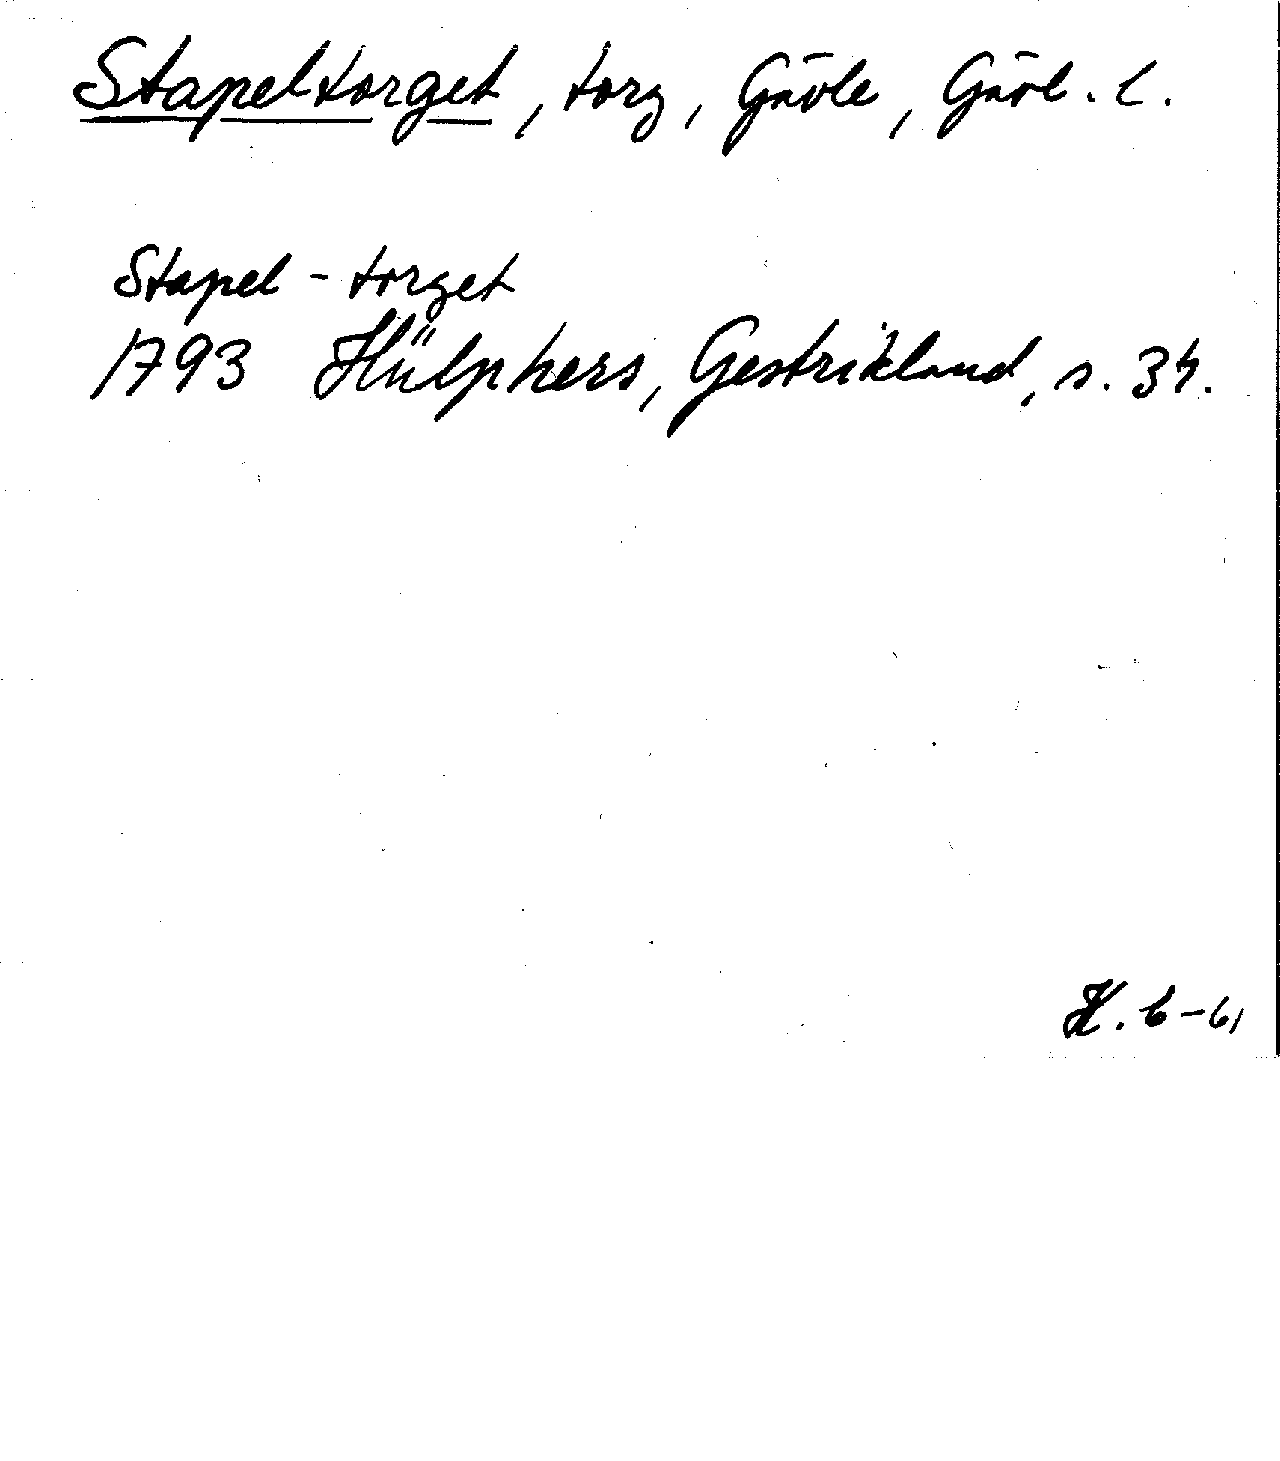 Stapeltorget, torg, Gävle, Gävl. l.
Stapel-torget
1793 Hülphers, Gestrikland, s. 34.
H. 6-61